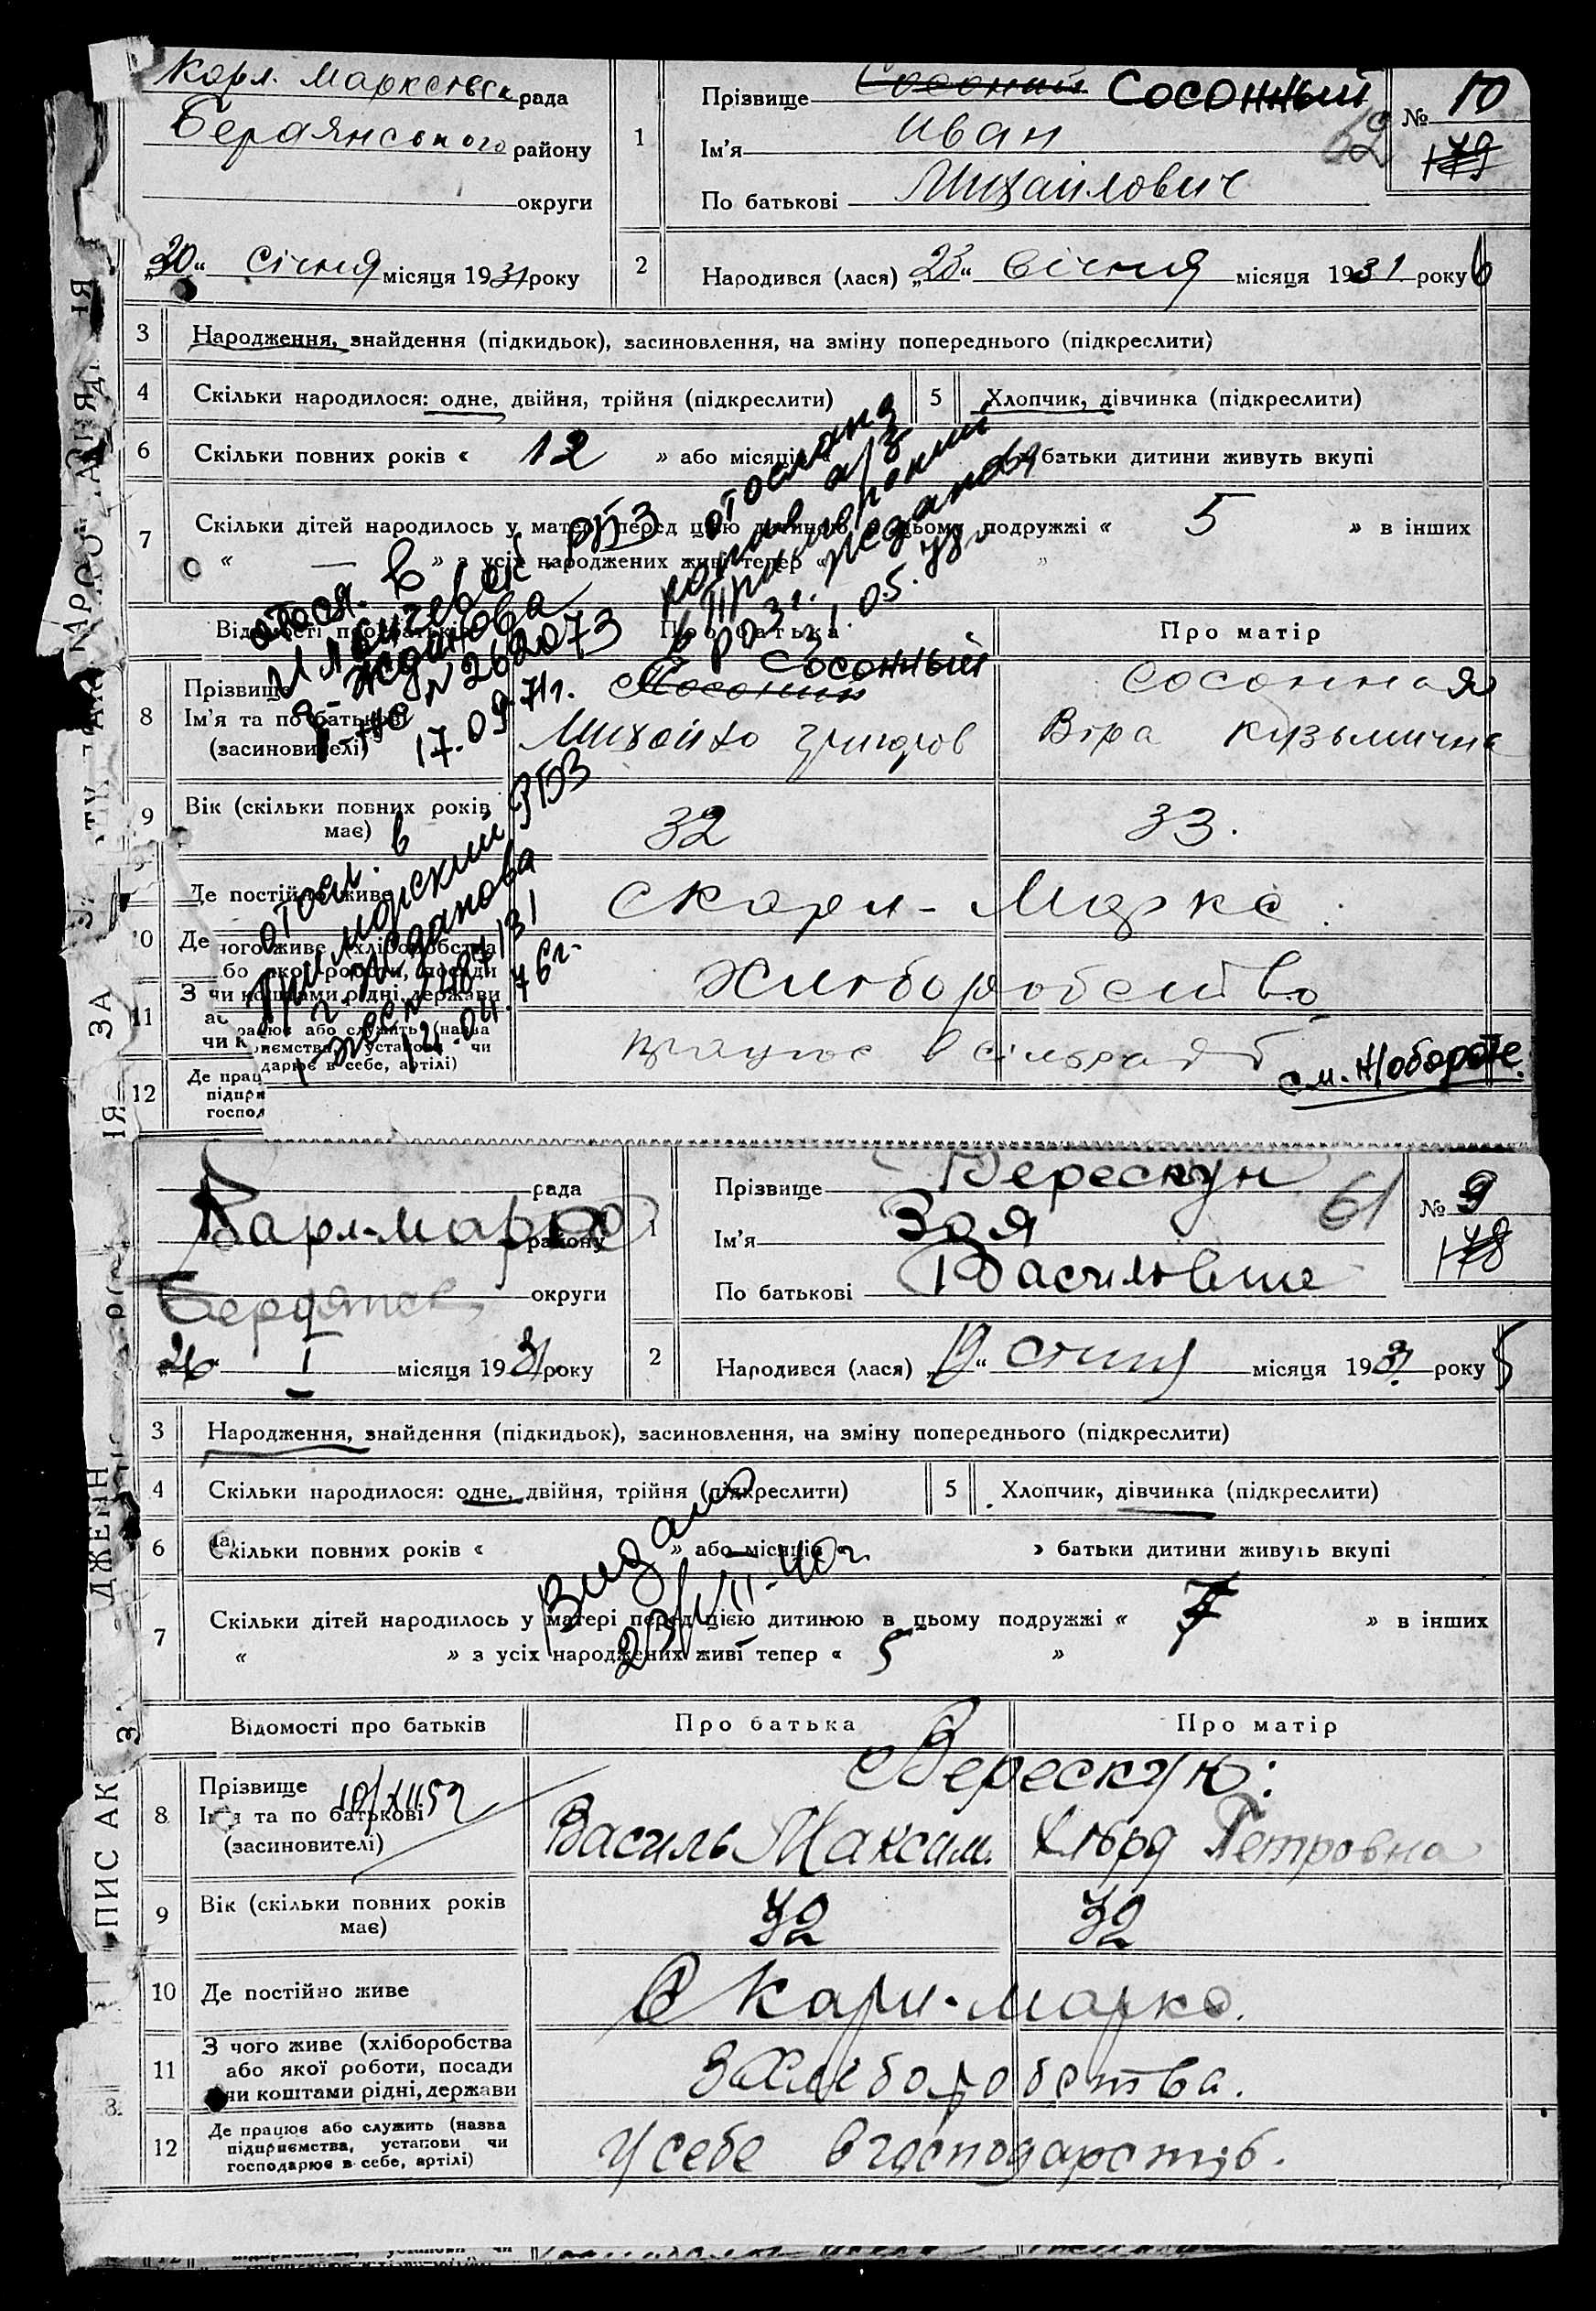 Карл. Марксівськ рада
Бердянського району
округи
"30" січня місяця 1931 року
1
Прізвище Сосонный
Ім'я Иван
По батькові Михайлович
62
№ 10
179
2
Народився (лася) „23“ січня місяця 1931 року
3 Народження, знайдення (підкидьок), засиновлення, на зміну попереднього (підкреслити)
4 Скільки народилося: одне, двійня, трійня (підкреслити)
5 Хлопчик, дівчинка (підкреслити)
6 Скільки повних років « 12 » або місяців « » батьки дитини живуть вкупі
7 Скільки дітей народилось у матері перед цією дитиною в цьому подружжі « 5 » в інших
« — » з усіх народжених живі тепер « »
отослана
копия а/з
в Приморский
р. Жданова
31.05.
отосл. в
Ильичевск. РБЗ
г. Жданова
№ 262073
17.09.71г.
Відомості про батьків
Про батька
Про матір
8 Прізвище
Ім'я та по батькові
(засиновителі)
Сосонный
Михайло Григоров
Сосонная
Віра Кузьмична
9 Вік (скільки повних років має)
32
33.
отосл. в
Приморский РБЗ
г. Жданова
14.04.76г.
Де постійно живе
с Карл-Маркс
10 Де
чого живе (хліборобства
або якої роботи, посади
З чи коштами рідні, держави
11
хліборобство
працює або служить (назва
підприємства, установи чи
господарює в себе, артілі)
працює в сільраді
см. н/обороте.
12 Де прац
підпри
госпол
рада
Карл-Маркс
району
Бердянськ
округи
"26" I місяця 1931 року
1
Прізвище Верескун
Ім'я Зоя
По батькові Васильевне
61
№ 9
178
2
Народився (лася) „19“ січня місяця 1931 року
3 Народження, знайдення (підкидьок), засиновлення, на зміну попереднього (підкреслити)
4 Скільки народилося: одне, двійня, трійня (підкреслити)
5 Хлопчик, дівчинка (підкреслити)
6 Скільки повних років « » або місяців « » батьки дитини живуть вкупі
Видано
23/VII-40г.
7 Скільки дітей народилось у матері перед цією дитиною в цьому подружжі « 7 » в інших
« » з усіх народжених живі тепер « 5 »
Відомості про батьків
Про батька
Про матір
8 Прізвище
Ім'я та по батькові
(засиновителі)
Верескун:
Василь Максим.
Петровна
9 Вік (скільки повних років має)
32
32
10 Де постійно живе
с Карл-Маркс.
11 З чого живе (хліборобства
або якої роботи, посади
чи коштами рідні, держави
З хліборобства.
12 Де працює або служить (назва
підприємства, установи чи
господарює в себе, артілі)
У себе в господарстві.